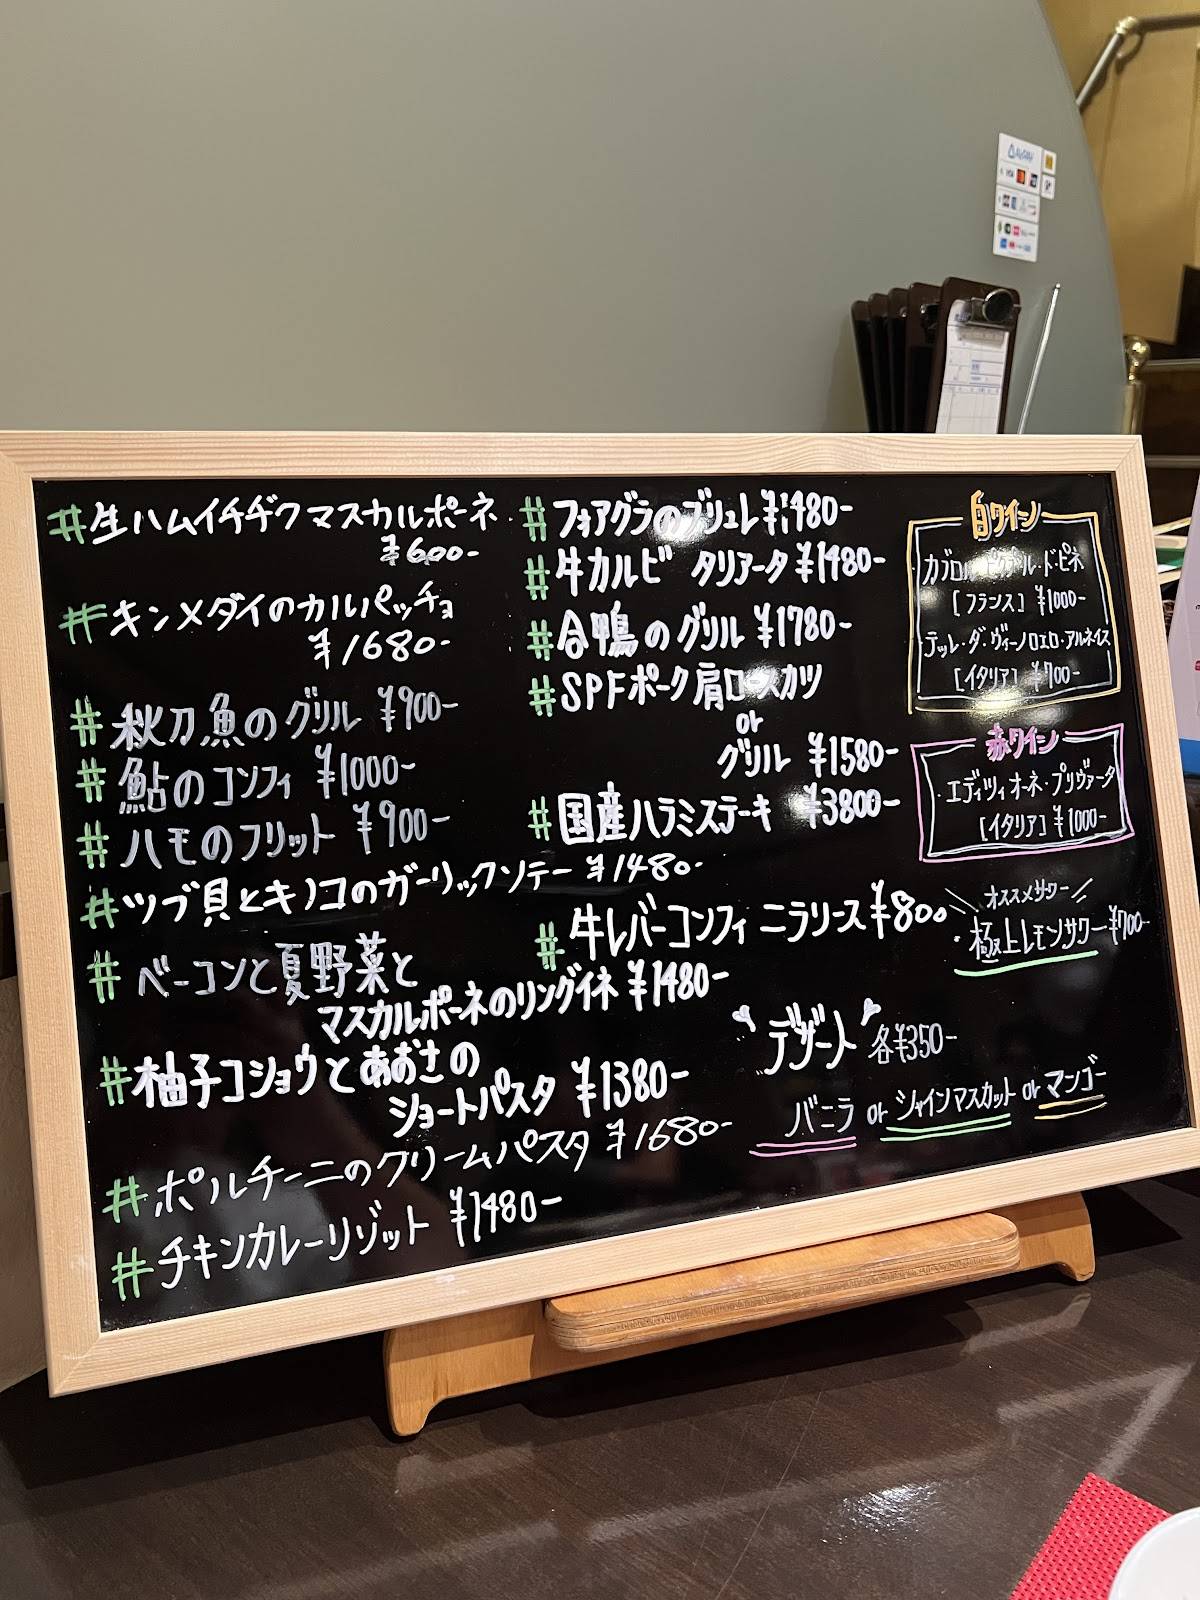 #生ハムイチヂクマスカルポーネ
¥600-
#キンメダイのカルパッチョ
¥1680-
#秋刀魚のグリル ¥900-
#鮎のコンフィ ¥1000-
#ハモのフリット ¥900-
#ツブ貝とキノコのガーリックソテー ¥1480-
#ベーコンと夏野菜と
マスカルポーネのリングイネ ¥1480-
#柚子コショウとあおさの
ショートパスタ ¥1380-
#ポルチーニのクリームパスタ ¥1680-
#チキンカレーリゾット ¥1480-
#フォアグラのブリュレ ¥1480-
#牛カルビ タリアータ ¥1480-
#合鴨のグリル ¥1780-
#SPFポーク肩ロースカツ
or
グリル ¥1580-
#国産ハラミステーキ ¥3800-
#牛レバーコンフィ ニラソース ¥800
デザート 各¥350-
バニラ or シャインマスカット or マンゴー
白ワイン
ド・ピネ
[フランス] ¥1000-
テッレ・ダ・ヴィーノロエロ・アルネイス
[イタリア] ¥700-
赤ワイン
・エディツィオーネ・プリヴァータ
[イタリア] ¥1000-
オススメサワー
・極上レモンサワー ¥700-
VISA